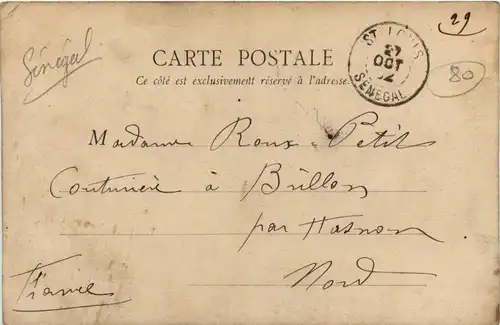 29
Sénégal
CARTE POSTALE
Ce côté est exclusivement réservé à l'adresse.
ST LOUIS
27
OCT
02
SENEGAL
80
Madame Roux-Petit
Couturière à Brillon
par Hasnon
Nord
France